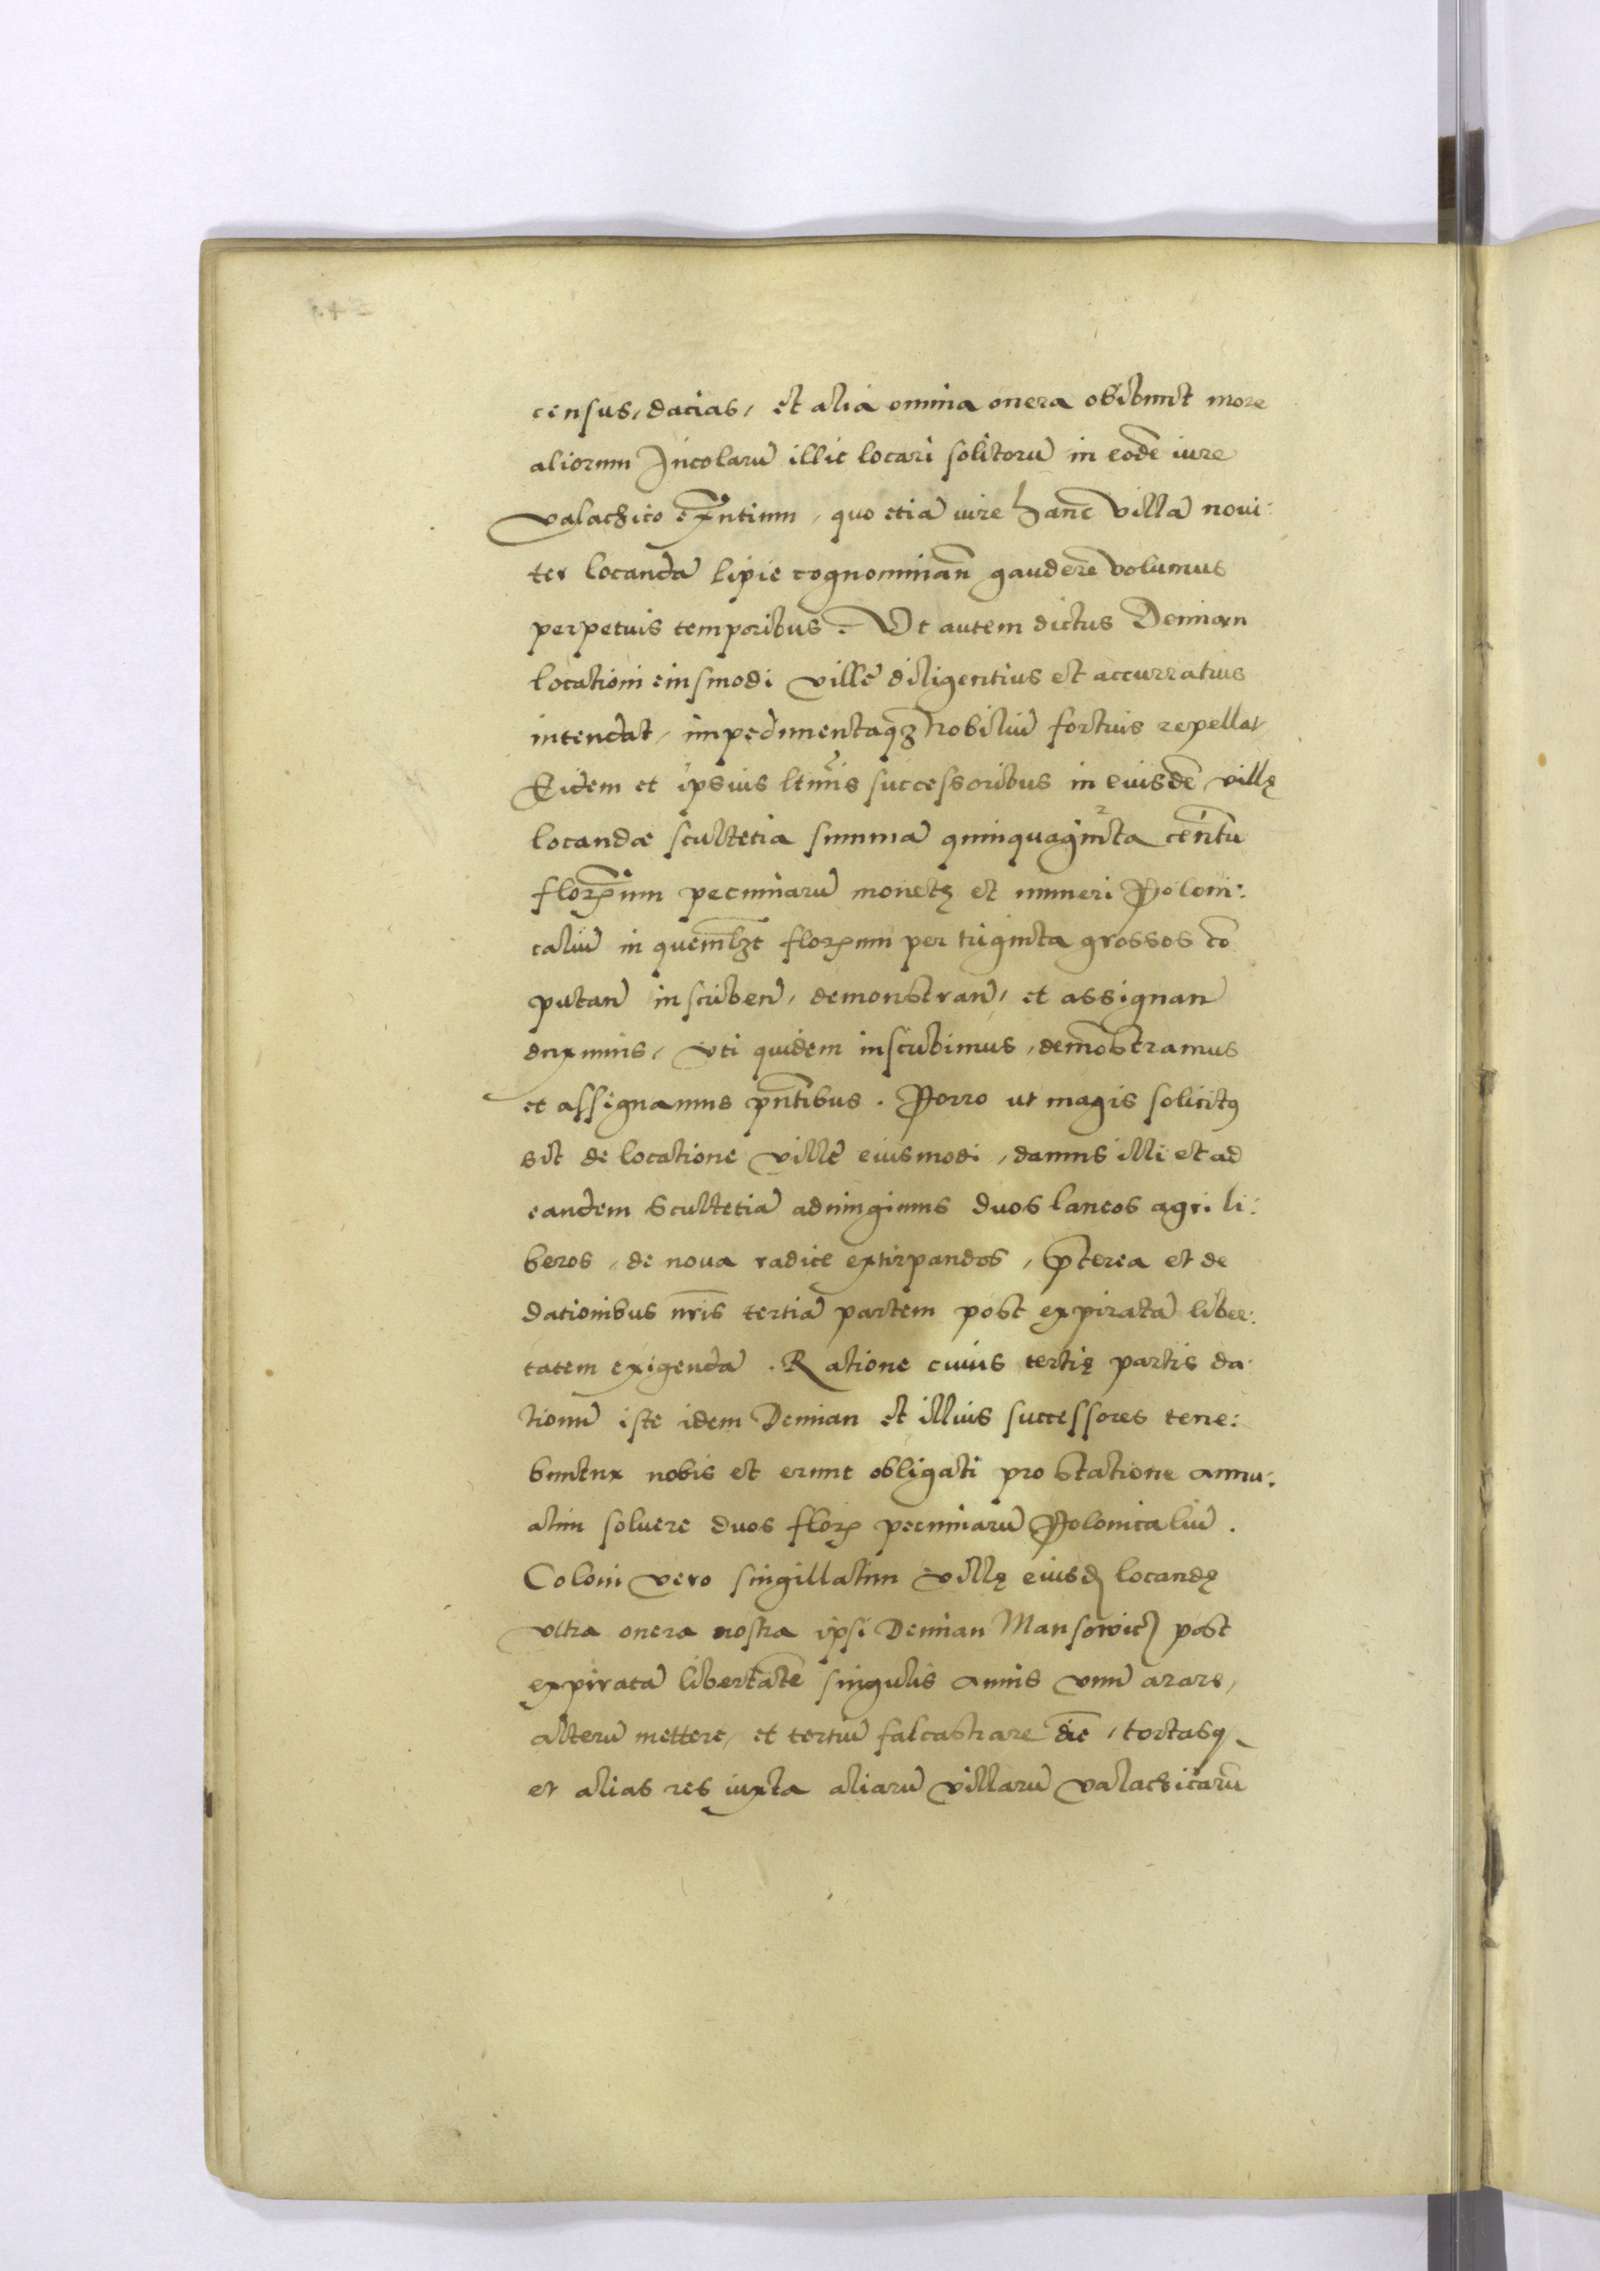 census, dacias, et alia omnia onera obibunt more
aliorum Incolarū illic locari solitorū in eodē iure
valachico exn̄tium, quo etiā iure hanc̄ villā noui:
ter locandā lipie cognominan̄ gauderē volumus
perpetuis temporibus. Vt autem dictus Demian
locationi eiusmodi villę diligentius et accurratius
intendat, impedimentaqꝫ nobiliū fortius repellat
Eidem et ipsius ltīmis successoribus in euisdē villę
locandæ scultetia summā quinquaginta centū
florenum pecuniarū monetę et numeri Poloni:
caliū in quemlꝫt florenum per triginta grossos cō
putan̄ inscriben̄, demonstran̄, et assignan̄
duximus, vti quidem inscribimus, demōstramus
et assignamus pn̄tibus. Porro ut magis solicitꝰ
sit de locatione villę eiusmodi, damus illi et ad
eandem scultetiā adiungimus duos laneos agri li:
beros, de noua radice extirpandos, p̄terea et de
dationibus nr̄is tertiā partem post expiratā liber:
tatem exigendā. Ratione cuius tertię partis da:
tionū iste idem Demian et illius successores tene:
buntur nobis et erunt obligati pro statione annu:
atim soluere duos floꝝ pecuniarū Polonicaliū.
Coloni vero singillatim villę eiusd locandę
vltra onera nostra ipsi Demian Mansowicz post
expiratā libertatē singulis annis vnū arare,
alterū mettere, et tertiū falcastrare diē, tortasq
et alias res iuxta aliarū villarū valachicarū